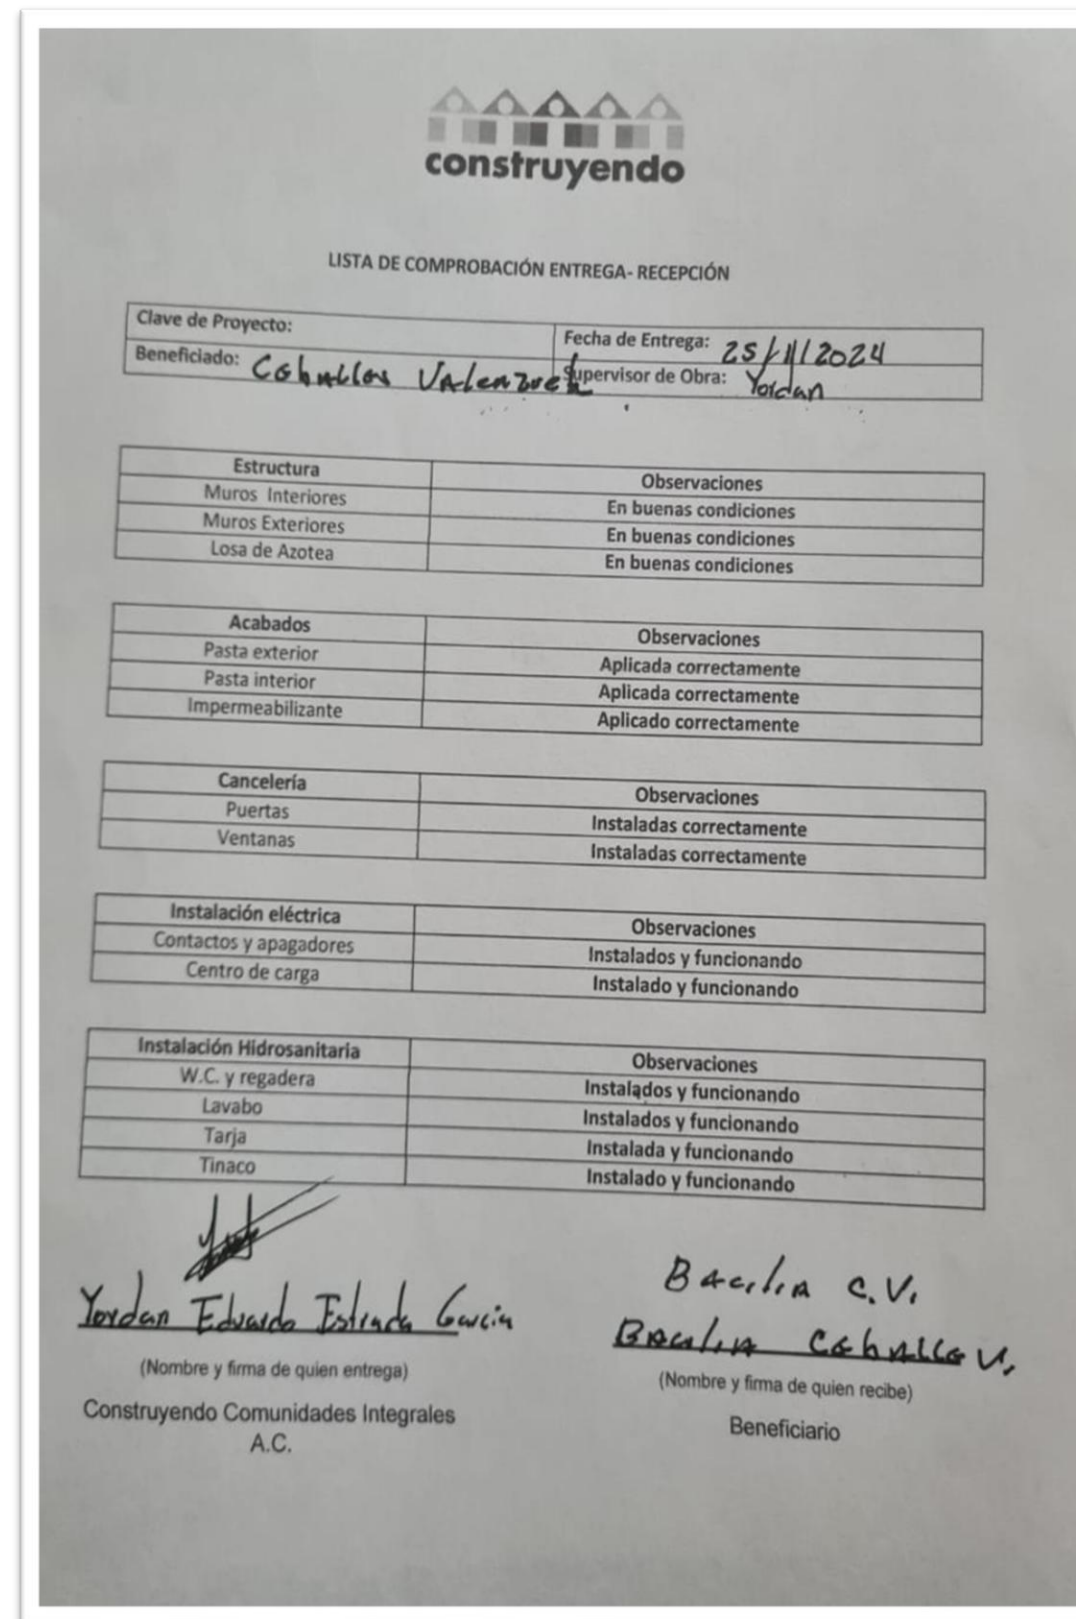 construyendo
LISTA DE COMPROBACIÓN ENTREGA- RECEPCIÓN
Clave de Proyecto:
Fecha de Entrega: 25/11/2024
Beneficiado: Ceballos Valenzuela
Supervisor de Obra: Yordan
Estructura Observaciones
Muros Interiores En buenas condiciones
Muros Exteriores En buenas condiciones
Losa de Azotea En buenas condiciones
Acabados Observaciones
Pasta exterior Aplicada correctamente
Pasta interior Aplicada correctamente
Impermeabilizante Aplicado correctamente
Cancelería Observaciones
Puertas Instaladas correctamente
Ventanas Instaladas correctamente
Instalación eléctrica Observaciones
Contactos y apagadores Instalados y funcionando
Centro de carga Instalado y funcionando
Instalación Hidrosanitaria Observaciones
W.C. y regadera Instalados y funcionando
Lavabo Instalados y funcionando
Tarja Instalada y funcionando
Tinaco Instalado y funcionando
Yordan Eduardo Estrada Garcia
(Nombre y firma de quien entrega)
Construyendo Comunidades Integrales
A.C.
Bacilia C.V.
Bacilia Ceballo V.
(Nombre y firma de quien recibe)
Beneficiario